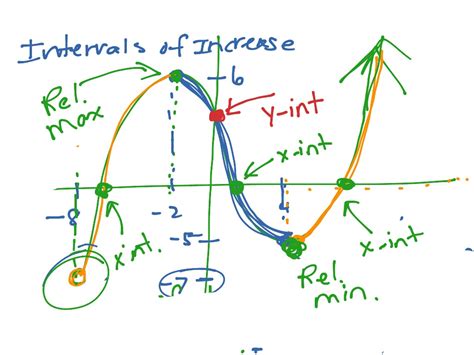 Intervals of Increase
Rel.
max
-6
y-int
x-int
-8
-2
4
x int.
-5
x-int
-7
Rel.
min.